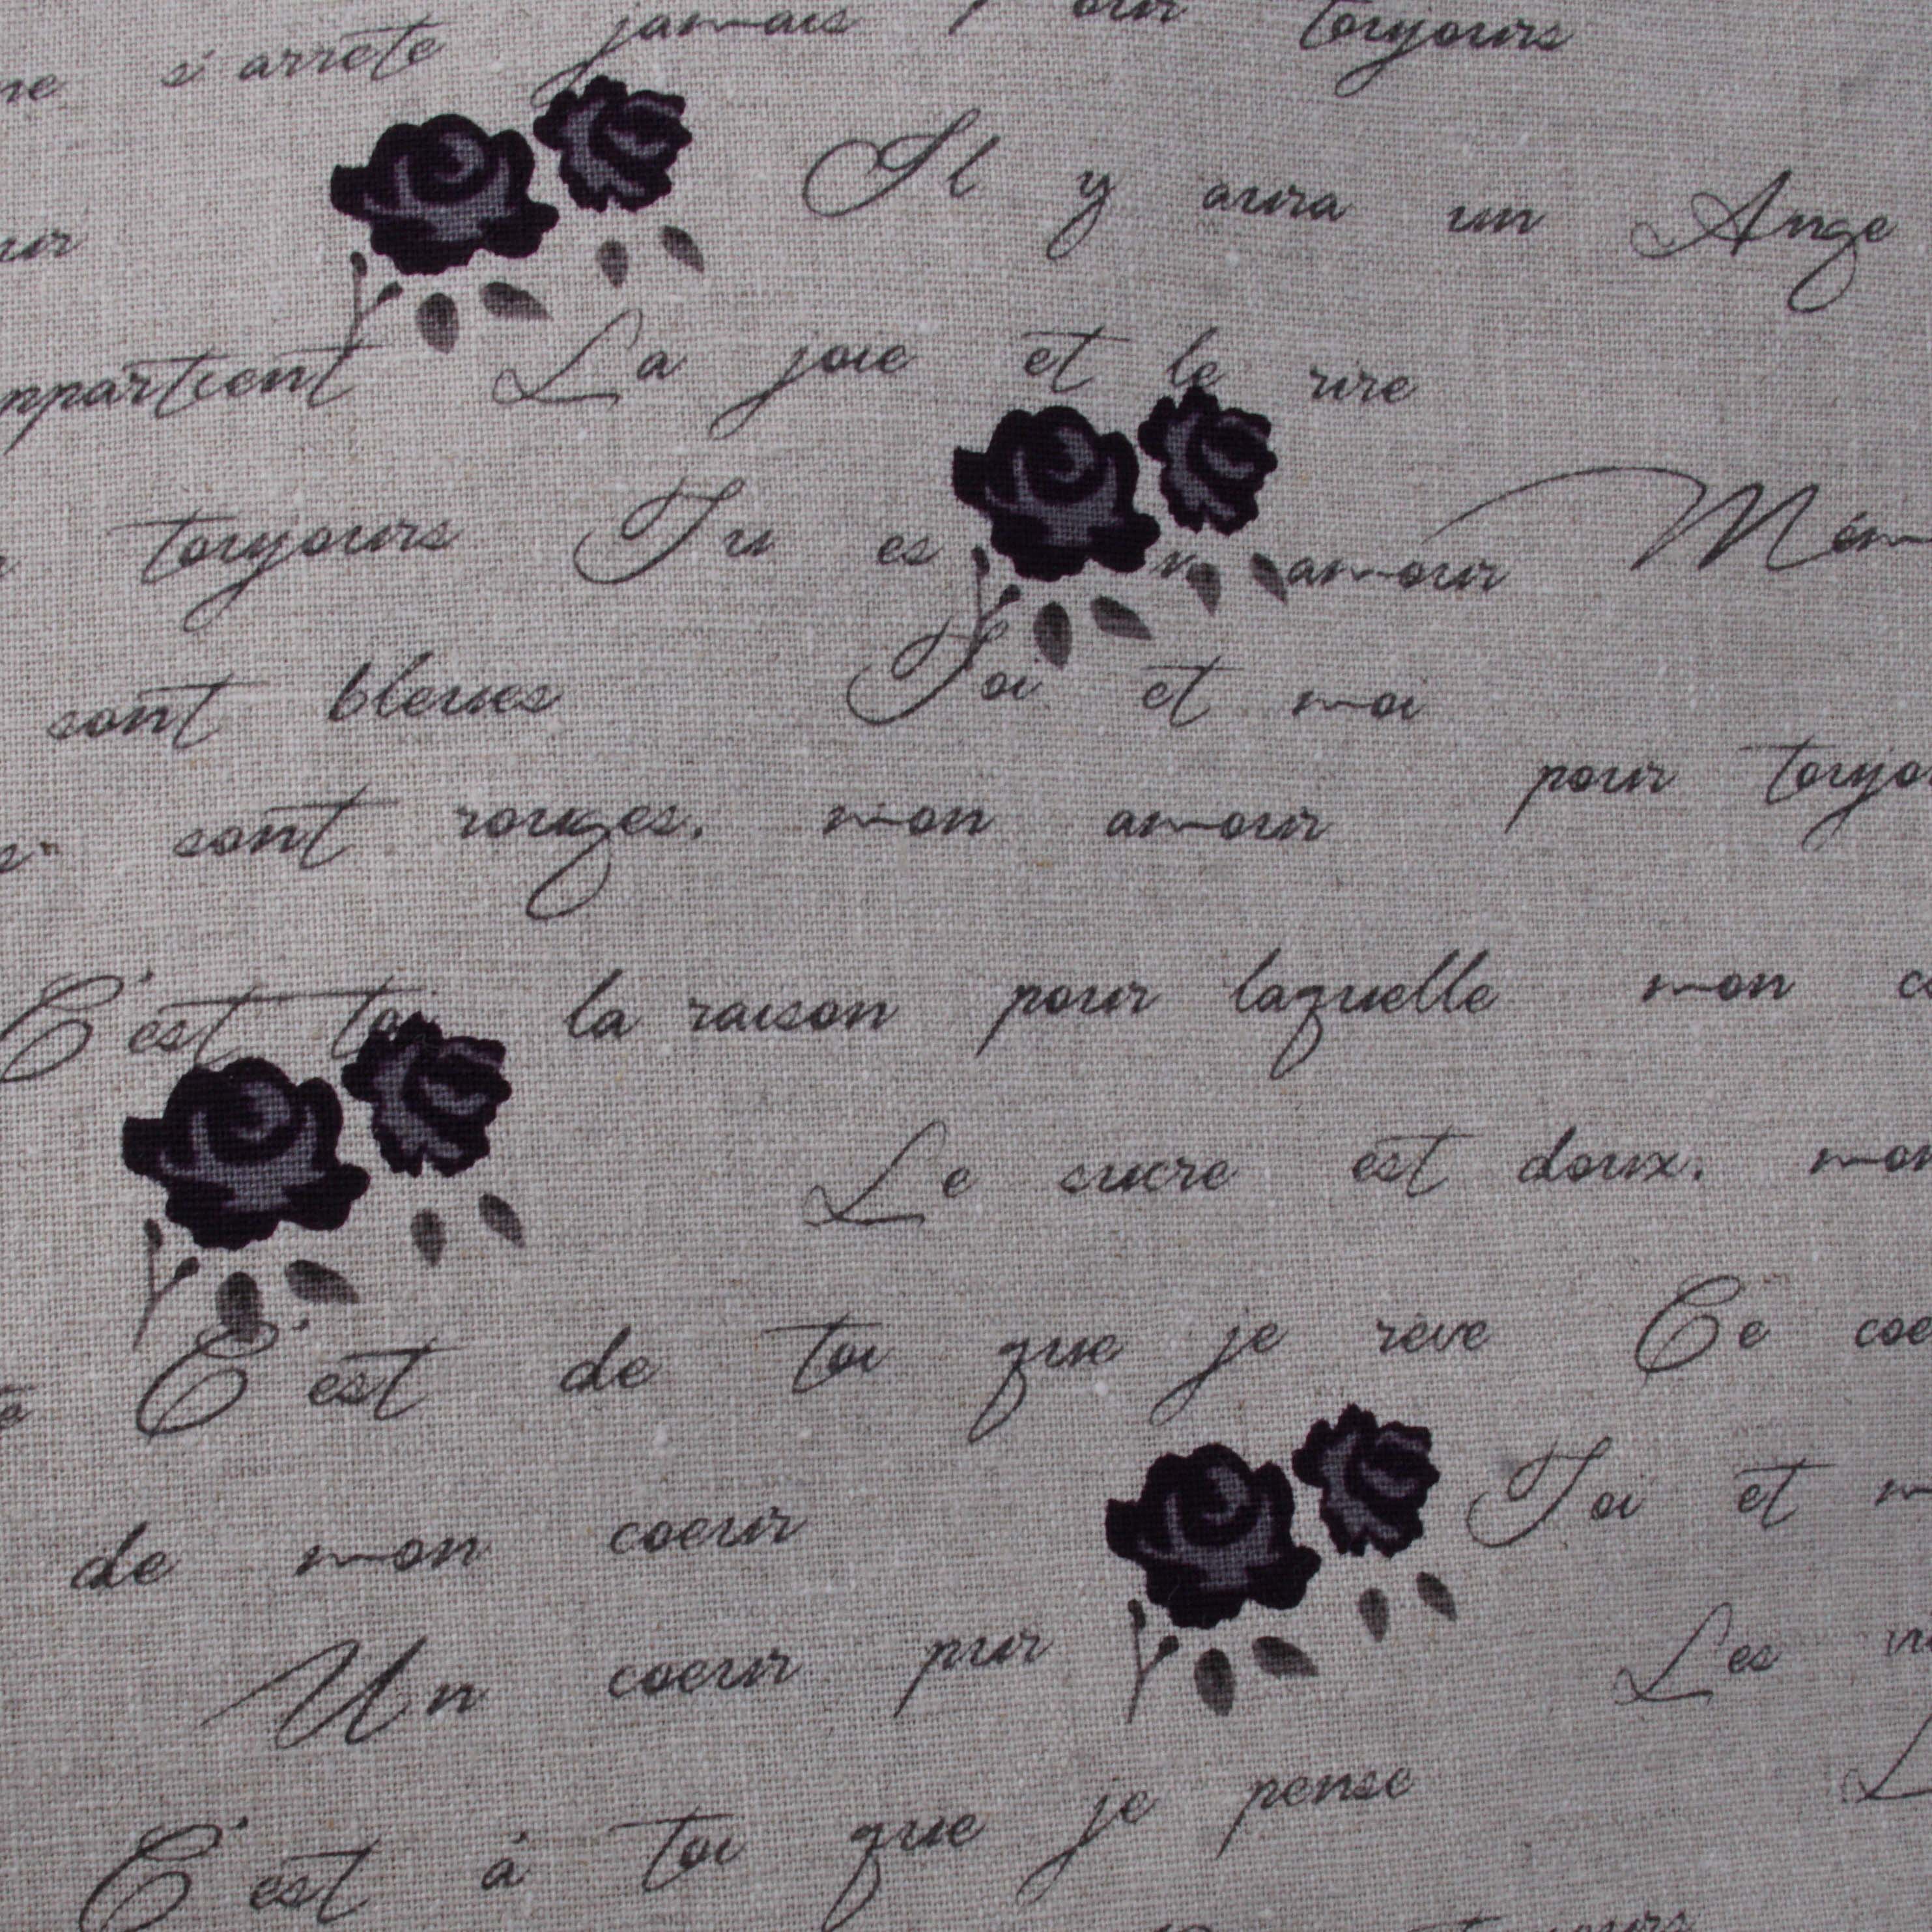 ne s'arrete jamais Pour toujours
Il y aura un Ange
La joie et le rire
toujours Tu es amour
sont bleues Toi et moi
pour
sont rouges. mon amour
C'est toi la raison pour laquelle mon
Le sucre est doux. mon
C'est de toi que je reve Ce
de mon coeur Toi et
Un coeur pur Les
C'est à toi que je pense